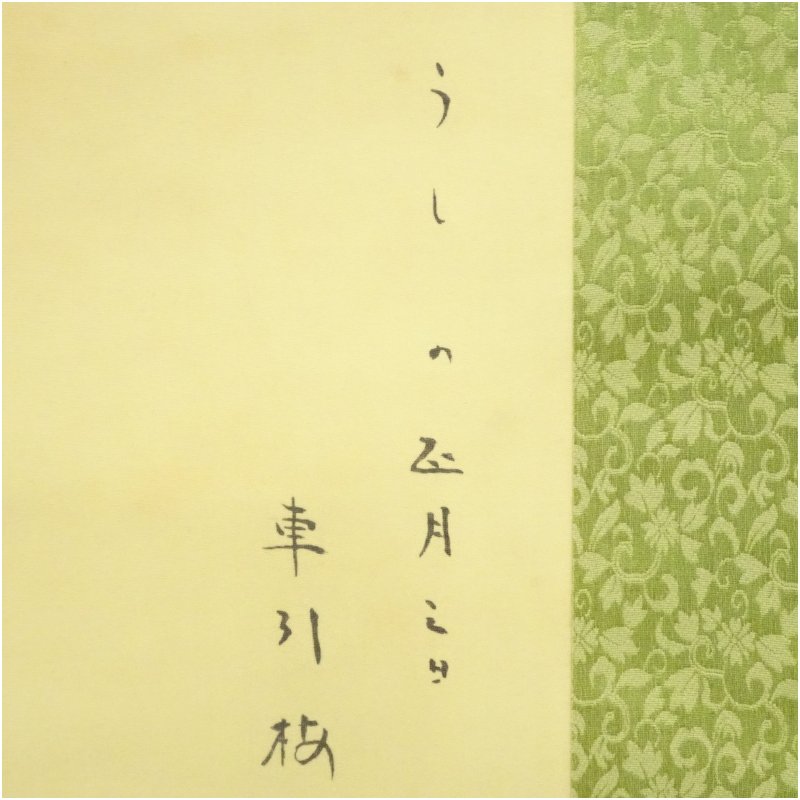 うしの正月之日
車引梅